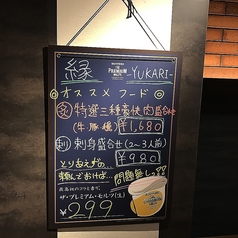 THE PREMIUM MALT'S
縁 -YUKARI-
オススメフード
特選三種焼肉盛合せ
(牛・豚・鶏) ¥1,680
刺 刺身盛合せ(2～3人前)
¥980
とりあえず…
頼んでおけば…問題無し!!
ザ・プレミアム・モルツ(生)
¥299